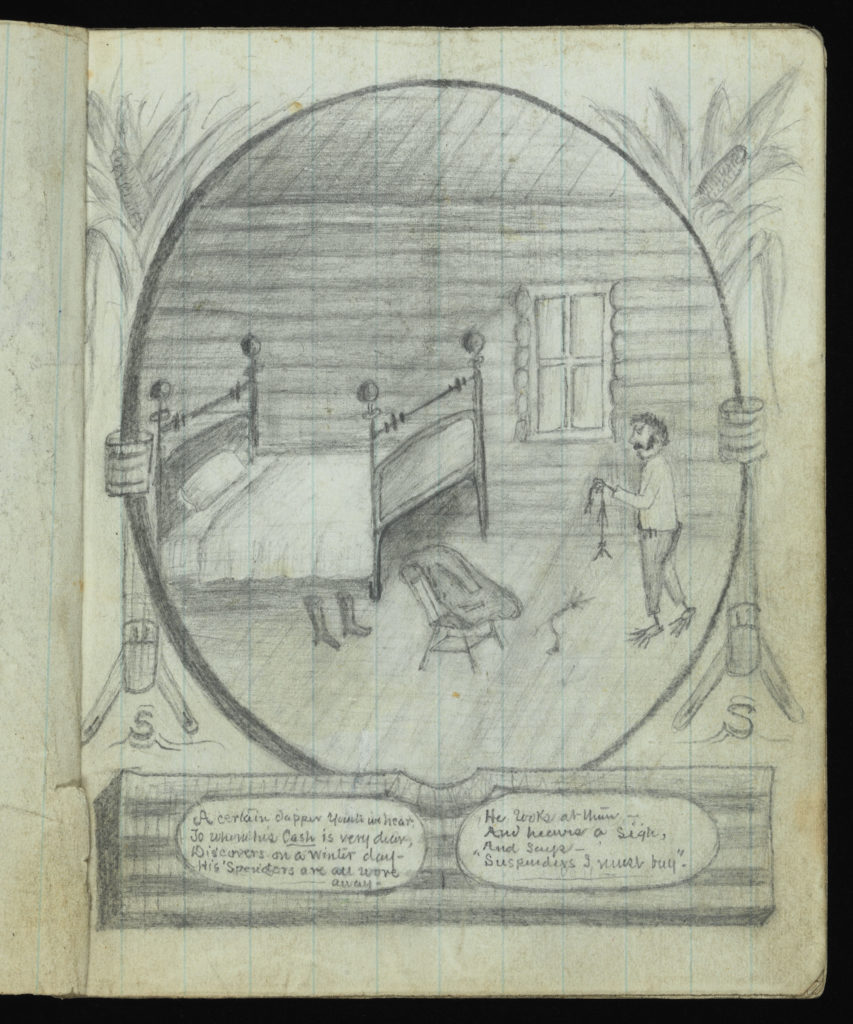 S
S
A certain dapper Youth we hear,
To whom his Cash is very dear,
Discovers on a winter day-
His 'Spenders are all wore
away.
He looks at them, -
And heaves a sigh,
And says -
"Suspenders I must buy".